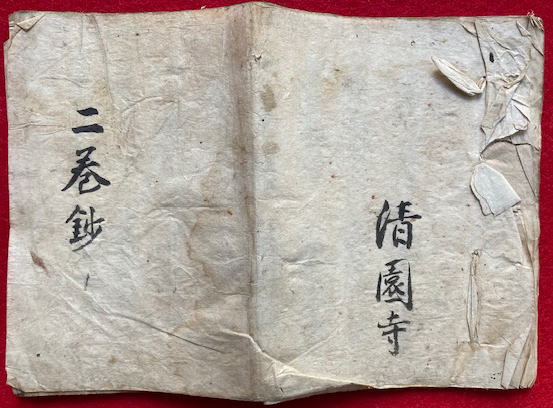 清園寺
二巻鈔